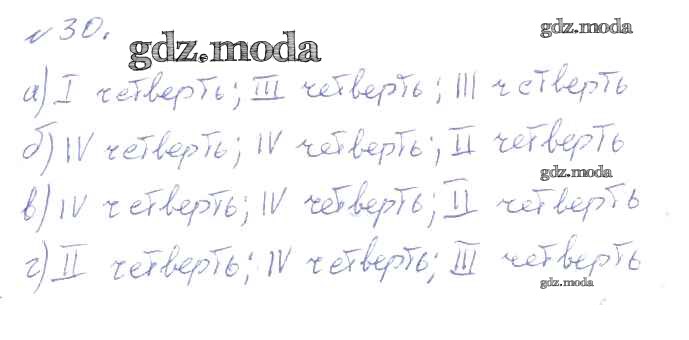 №30.
gdz.moda
gdz.moda
а) I четверть; III четверть; III четверть
б) IV четверть; IV четверть; II четверть
gdz.moda
в) IV четверть; IV четверть; II четверть
г) II четверть; IV четверть; III четверть
gdz.moda